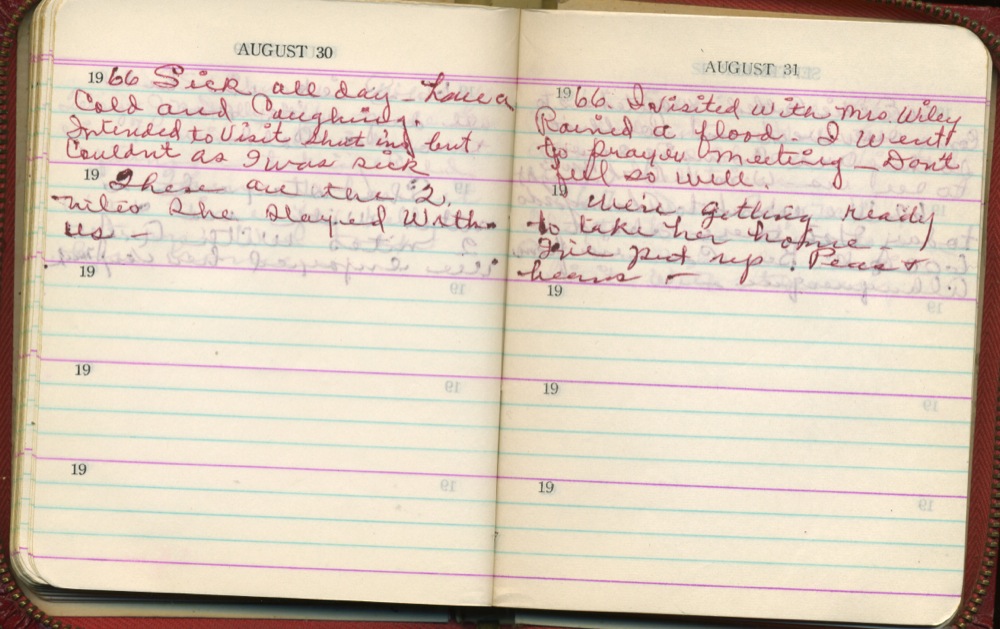 AUGUST 30
1966 Sick all day - Have a
Cold and Caughing.
Intended to Visit Shut ins but
Couldn't as I was sick
19 These are the 2
nites she stayed With
us -
19
19
19
AUGUST 31
1966. I visited with Mrs Wiley
Rained a flood. I Went
to prayer meeting - Don't
feel so well.
19 Were getting ready
to take her home -
put up. Peas +
beans -
19
19
19